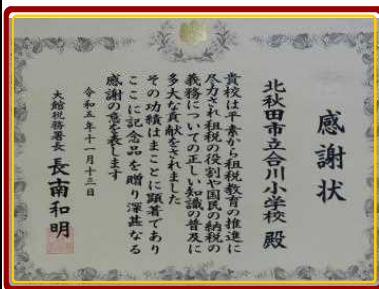 感謝状
北秋田市立合川小学校 殿
貴校は平素から租税教育の推進に
尽力され租税の役割や国民の納税の
義務についての正しい知識の普及に
多大な貢献をされました
その功績はまことに顕著であり
ここに記念品を贈り深甚なる
感謝の意を表します
令和五年十一月十三日
大館税務署長 長南和明